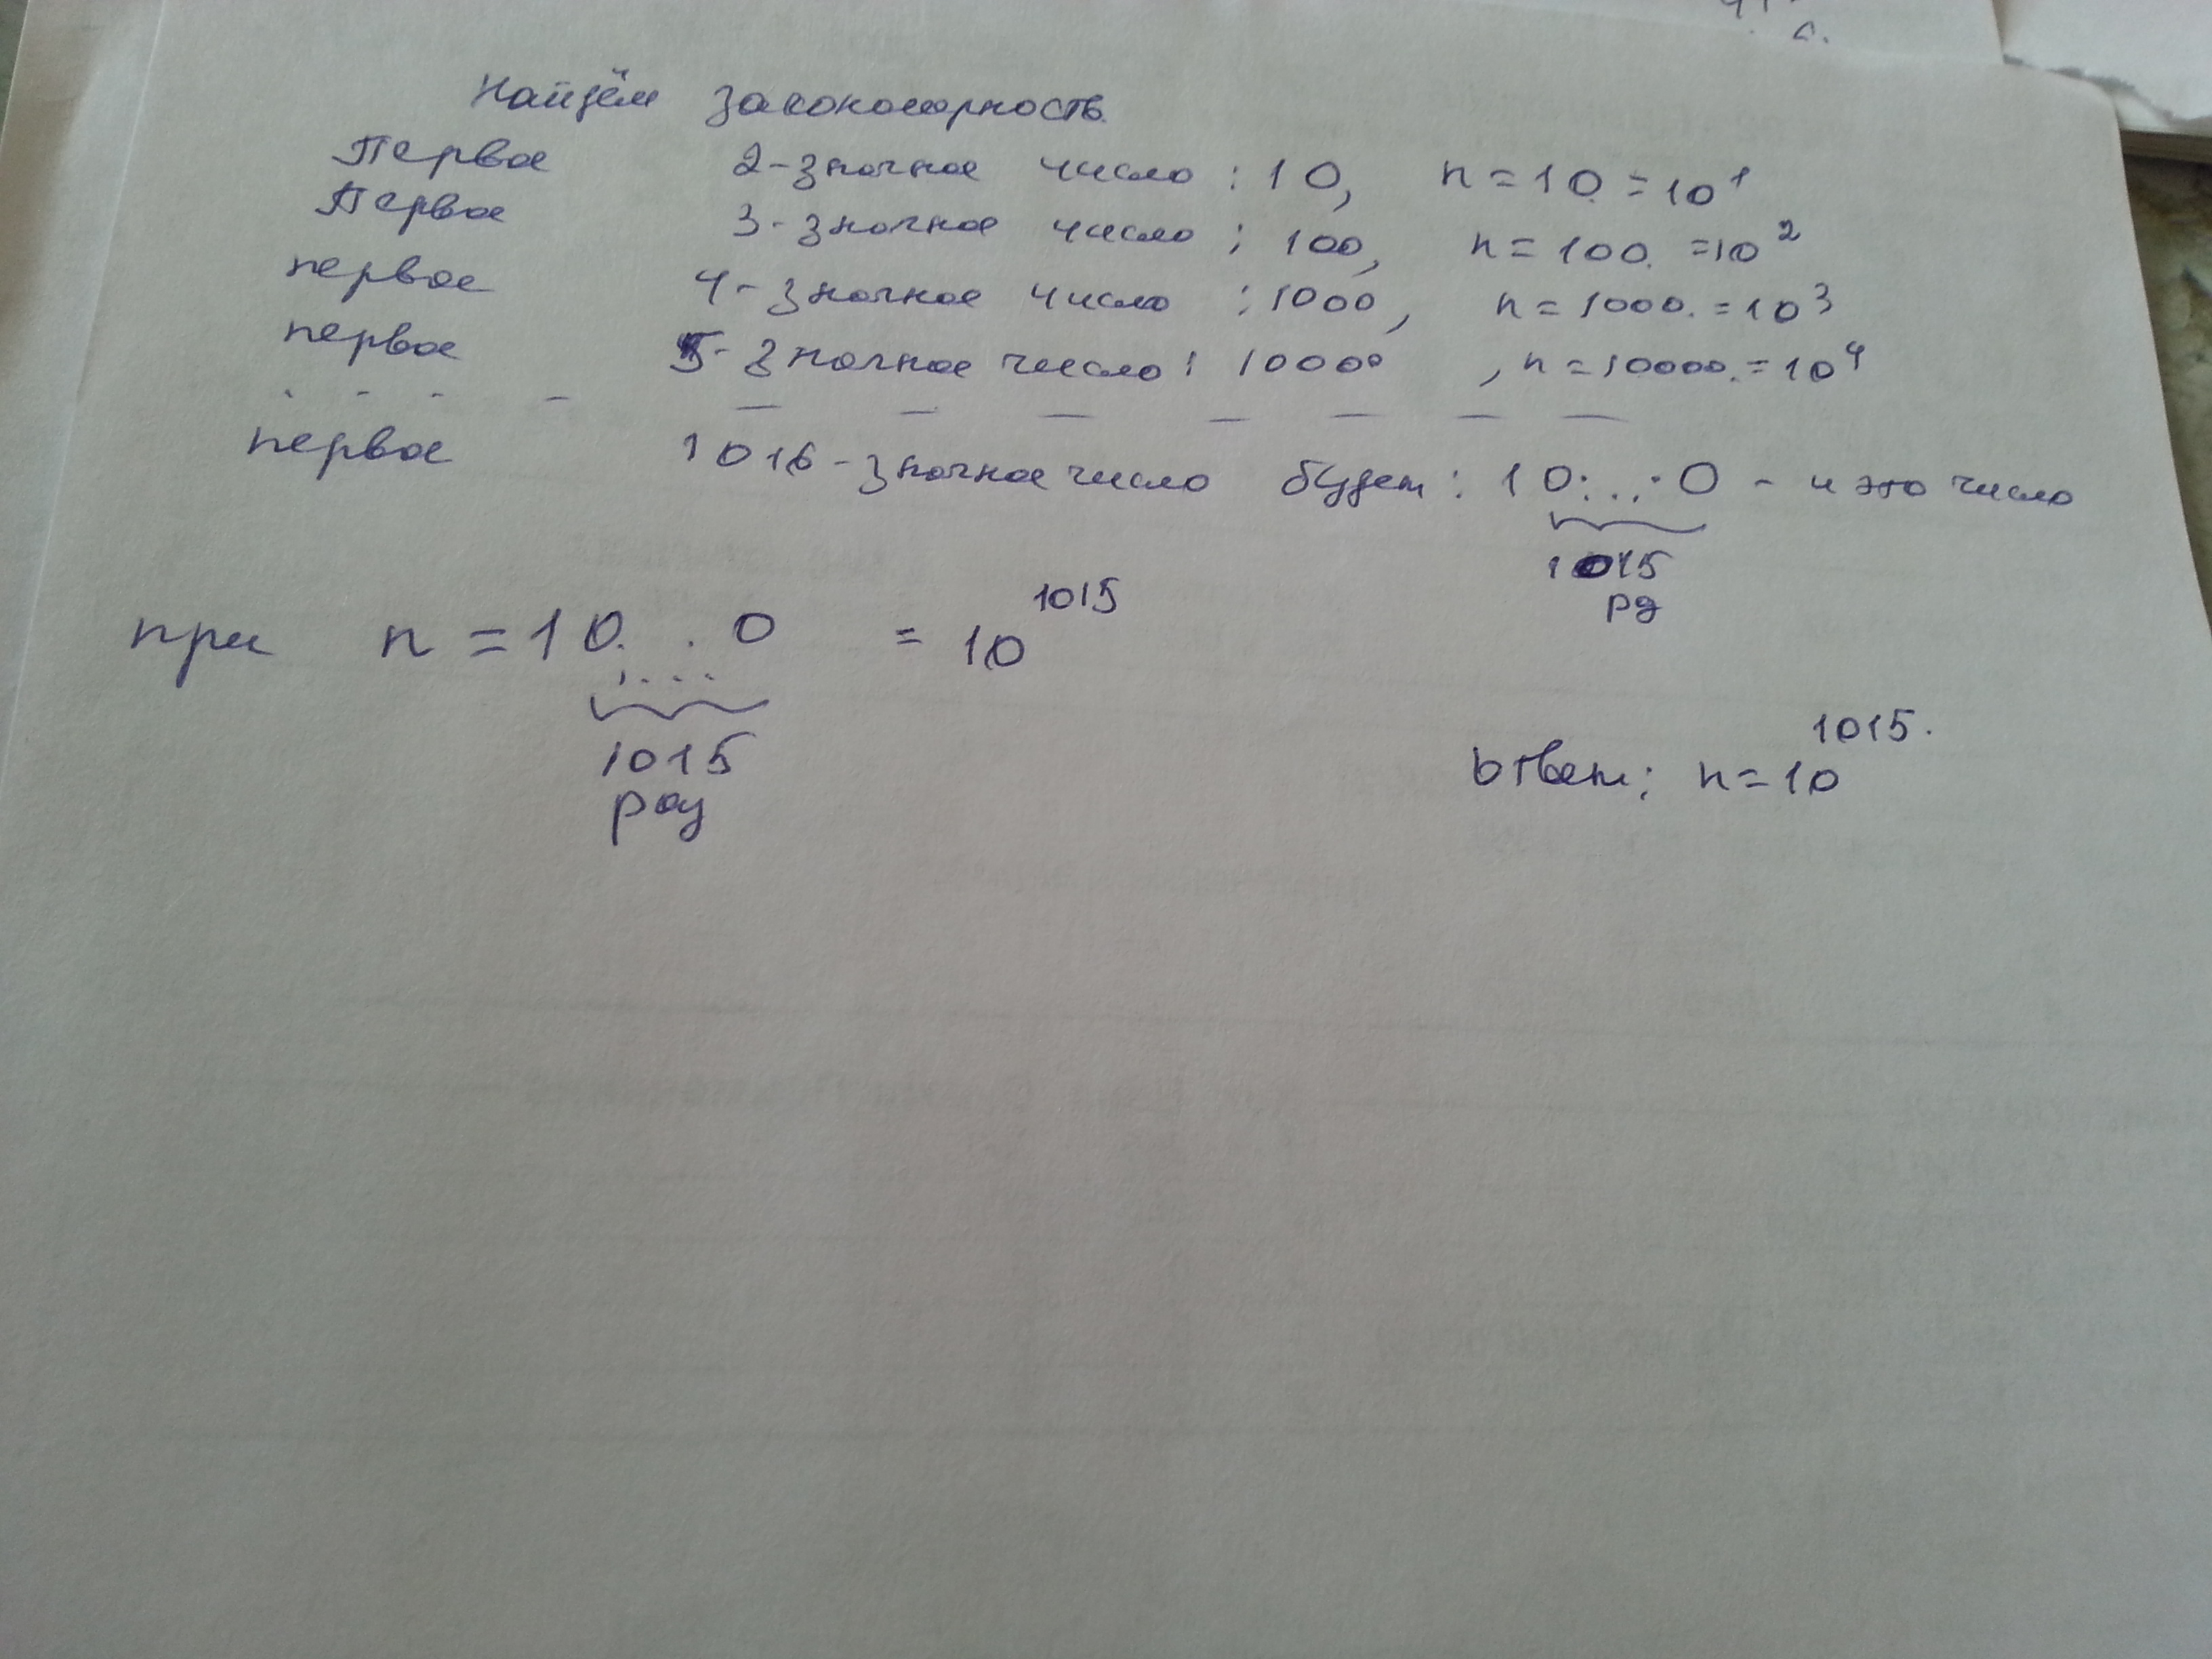 Найдём закономерность.
Первое 2-значное число : 10, n = 10 = 10¹
Первое 3-значное число ; 100, n = 100. = 10²
первое 4-значное число : 1000, n = 1000. = 10³
первое 5-значное число : 10000, n = 10000. = 10⁴
. - - - - - - - - - -
первое 1016-значное число будет : 10...0 - и это число
1015
рд
при n = 10...0 = 10¹⁰¹⁵
1015
раз
Ответ: n = 10¹⁰¹⁵.